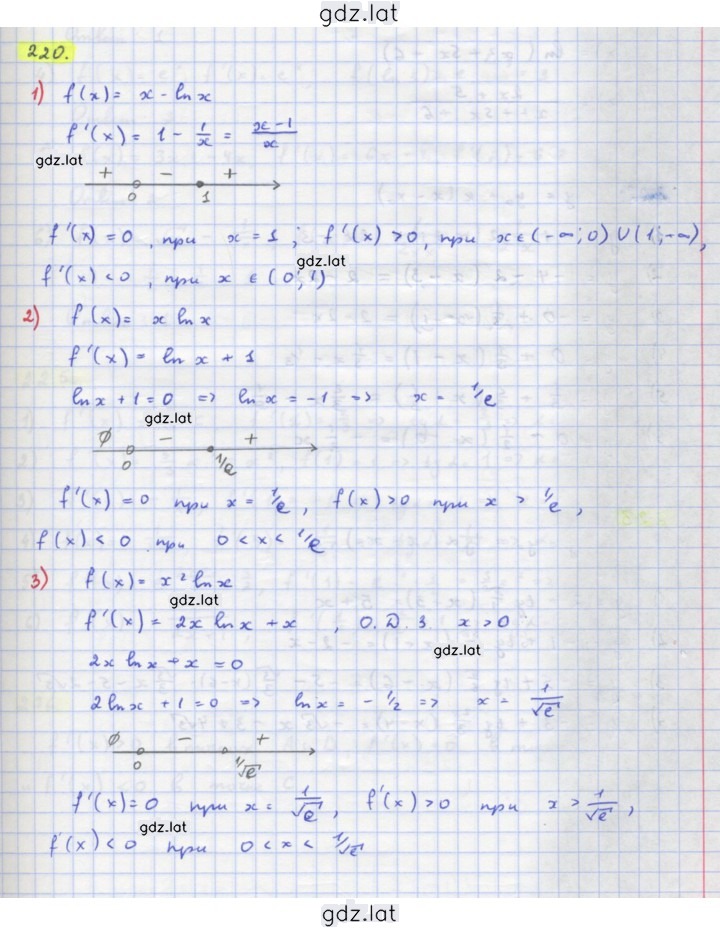 gdz.lat
220.
1) f(x) = x - ln x
f'(x) = 1 - 1/x = x-1/x
gdz.lat
+ - +
0 1
f'(x) = 0, при x = 1; f'(x) > 0, при x ∈ (-∞; 0) ∪ (1; -∞),
gdz.lat
f'(x) < 0, при x ∈ (0; 1)
2) f(x) = x ln x
f'(x) = ln x + 1
ln x + 1 = 0 => ln x = -1 => x = 1/e
gdz.lat
∅ - +
0 1/e
f'(x) = 0 при x = 1/e, f(x) > 0 при x > 1/e,
f(x) < 0 при 0 < x < 1/e
3) f(x) = x² ln x
gdz.lat
f'(x) = 2x ln x + x, О.Д.З. x > 0
gdz.lat
2x ln x + x = 0
2 ln x + 1 = 0 => ln x = -1/2 => x = 1/√e
∅ - +
0 1/√e
f'(x) = 0 при x = 1/√e, f'(x) > 0 при x > 1/√e,
gdz.lat
f'(x) < 0 при 0 < x < 1/√e
gdz.lat